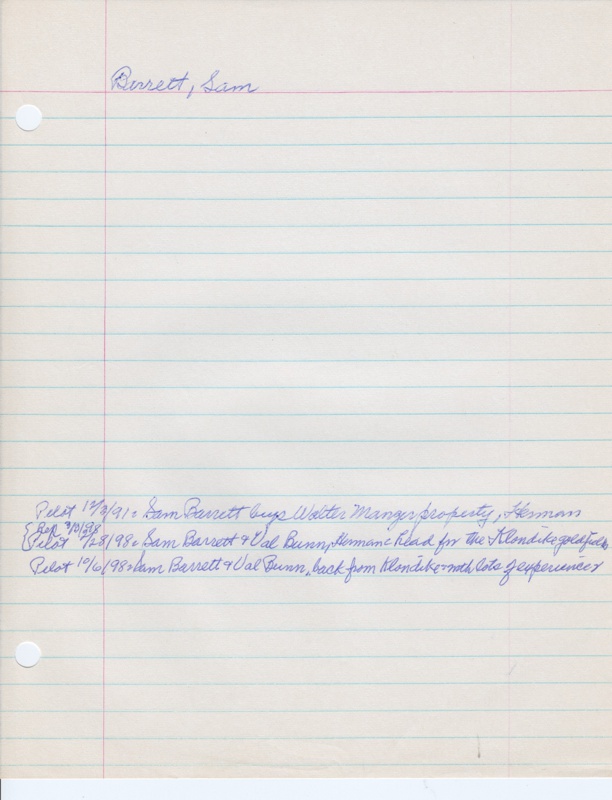 Barrett, Sam
Pilot 12/3/91: Sam Barrett buys Walter Manger property, Herman
{Rep 3/3/98
Pilot 2/28/98: Sam Barrett & Val Bunn, Hermann head for the Klondike goldfields
Pilot 10/6/98: Sam Barrett & Val Bunn, back from Klondike with lots of experiences